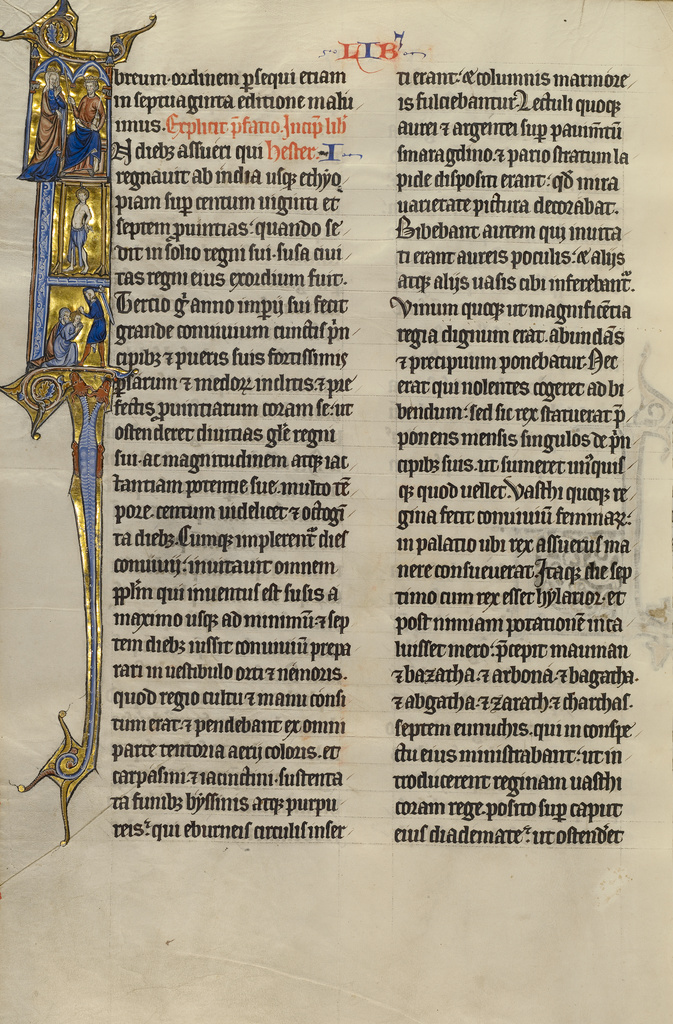 LIB
breum ordinem p̄sequi etiam
in septuaginta editione maluimus. Explicit p̄fatio. Incip̄ lib̄
N dieb; assueri qui hester. I
regnauit ab india usq; ethyo
piam sup̄ centum uiginti et
septem p̄uintias: quando se
dit in solio regni sui. susa ciui
tas regni eius exordium fuit.
Tercio g̊ anno imp̄ij sui fecit
grande conuiuium cunctis p̄n
cipib; ⁊ pueris suis fortissimis
p̄sarum ⁊ medoꝝ inclitis. ⁊ pre
fectis p̄uintiarum coram se: ut
ostenderet diuitias gl̄e regni
sui. ac magnitudinem atq; iac
tantiam potentie sue. multo tē
pore. centum uidelicet ⁊ octogī
ta dieb;. Cumq; implerent᷑ dies
conuiuij: inuitauit omnem
pp̄lm qui inuentus est susis a
maximo usq; ad minimū: ⁊ sep
tem dieb; iussit conuiuiū prepa
rari in uestibulo orti ⁊ nemoris.
quod regio cultu ⁊ manu consi
tum erat. ⁊ pendebant ex omni
parte tentoria aerij coloris. et
carpasini: ⁊ iacinctini. sustenta
ta funib; byssinis atq; purpu
reis: qui eburneis circulis inser
ti erant: & columnis marmore
is fulciebantur. Lectuli quoq;
aurei ⁊ argentei sup̄ pauim̄tū
smaragdino. ⁊ pario stratum la
pide dispositi erant: qd̄ mira
uarietate pictura decorabat.
Bibebant autem qui inuita
ti erant aureis poculis: & alijs
atq; alijs uasis cibi inferebant᷑.
Vinum quoq; ut magnificētia
regia dignum erat. abundās
⁊ precipuum ponebatur. Nec
erat qui nolentes cogeret ad bi
bendum: sed sic rex statuerat p̄
ponens mensis singulos de p̄n
cipib; suis. ut sumeret un̄quis
q; quod uellet. Vasthi quoq; re
gina fecit conuiuiū feminaꝝ:
in palatio ubi rex assuerus ma
nere consueuerat. Itaq; die sep
timo cum rex esset hylarior. et
post nimiam potationē inca
luisset mero: p̄cepit mauman
⁊ bazatha. ⁊ arbona. ⁊ bagatha.
⁊ abgatha. ⁊ zarath. ⁊ charchas.
septem eunuchis. qui in conspe
ctu eius ministrabant: ut in
troducerent reginam uasthi
coram rege. posito sup̄ caput
eius diademate: ut ostend̄et